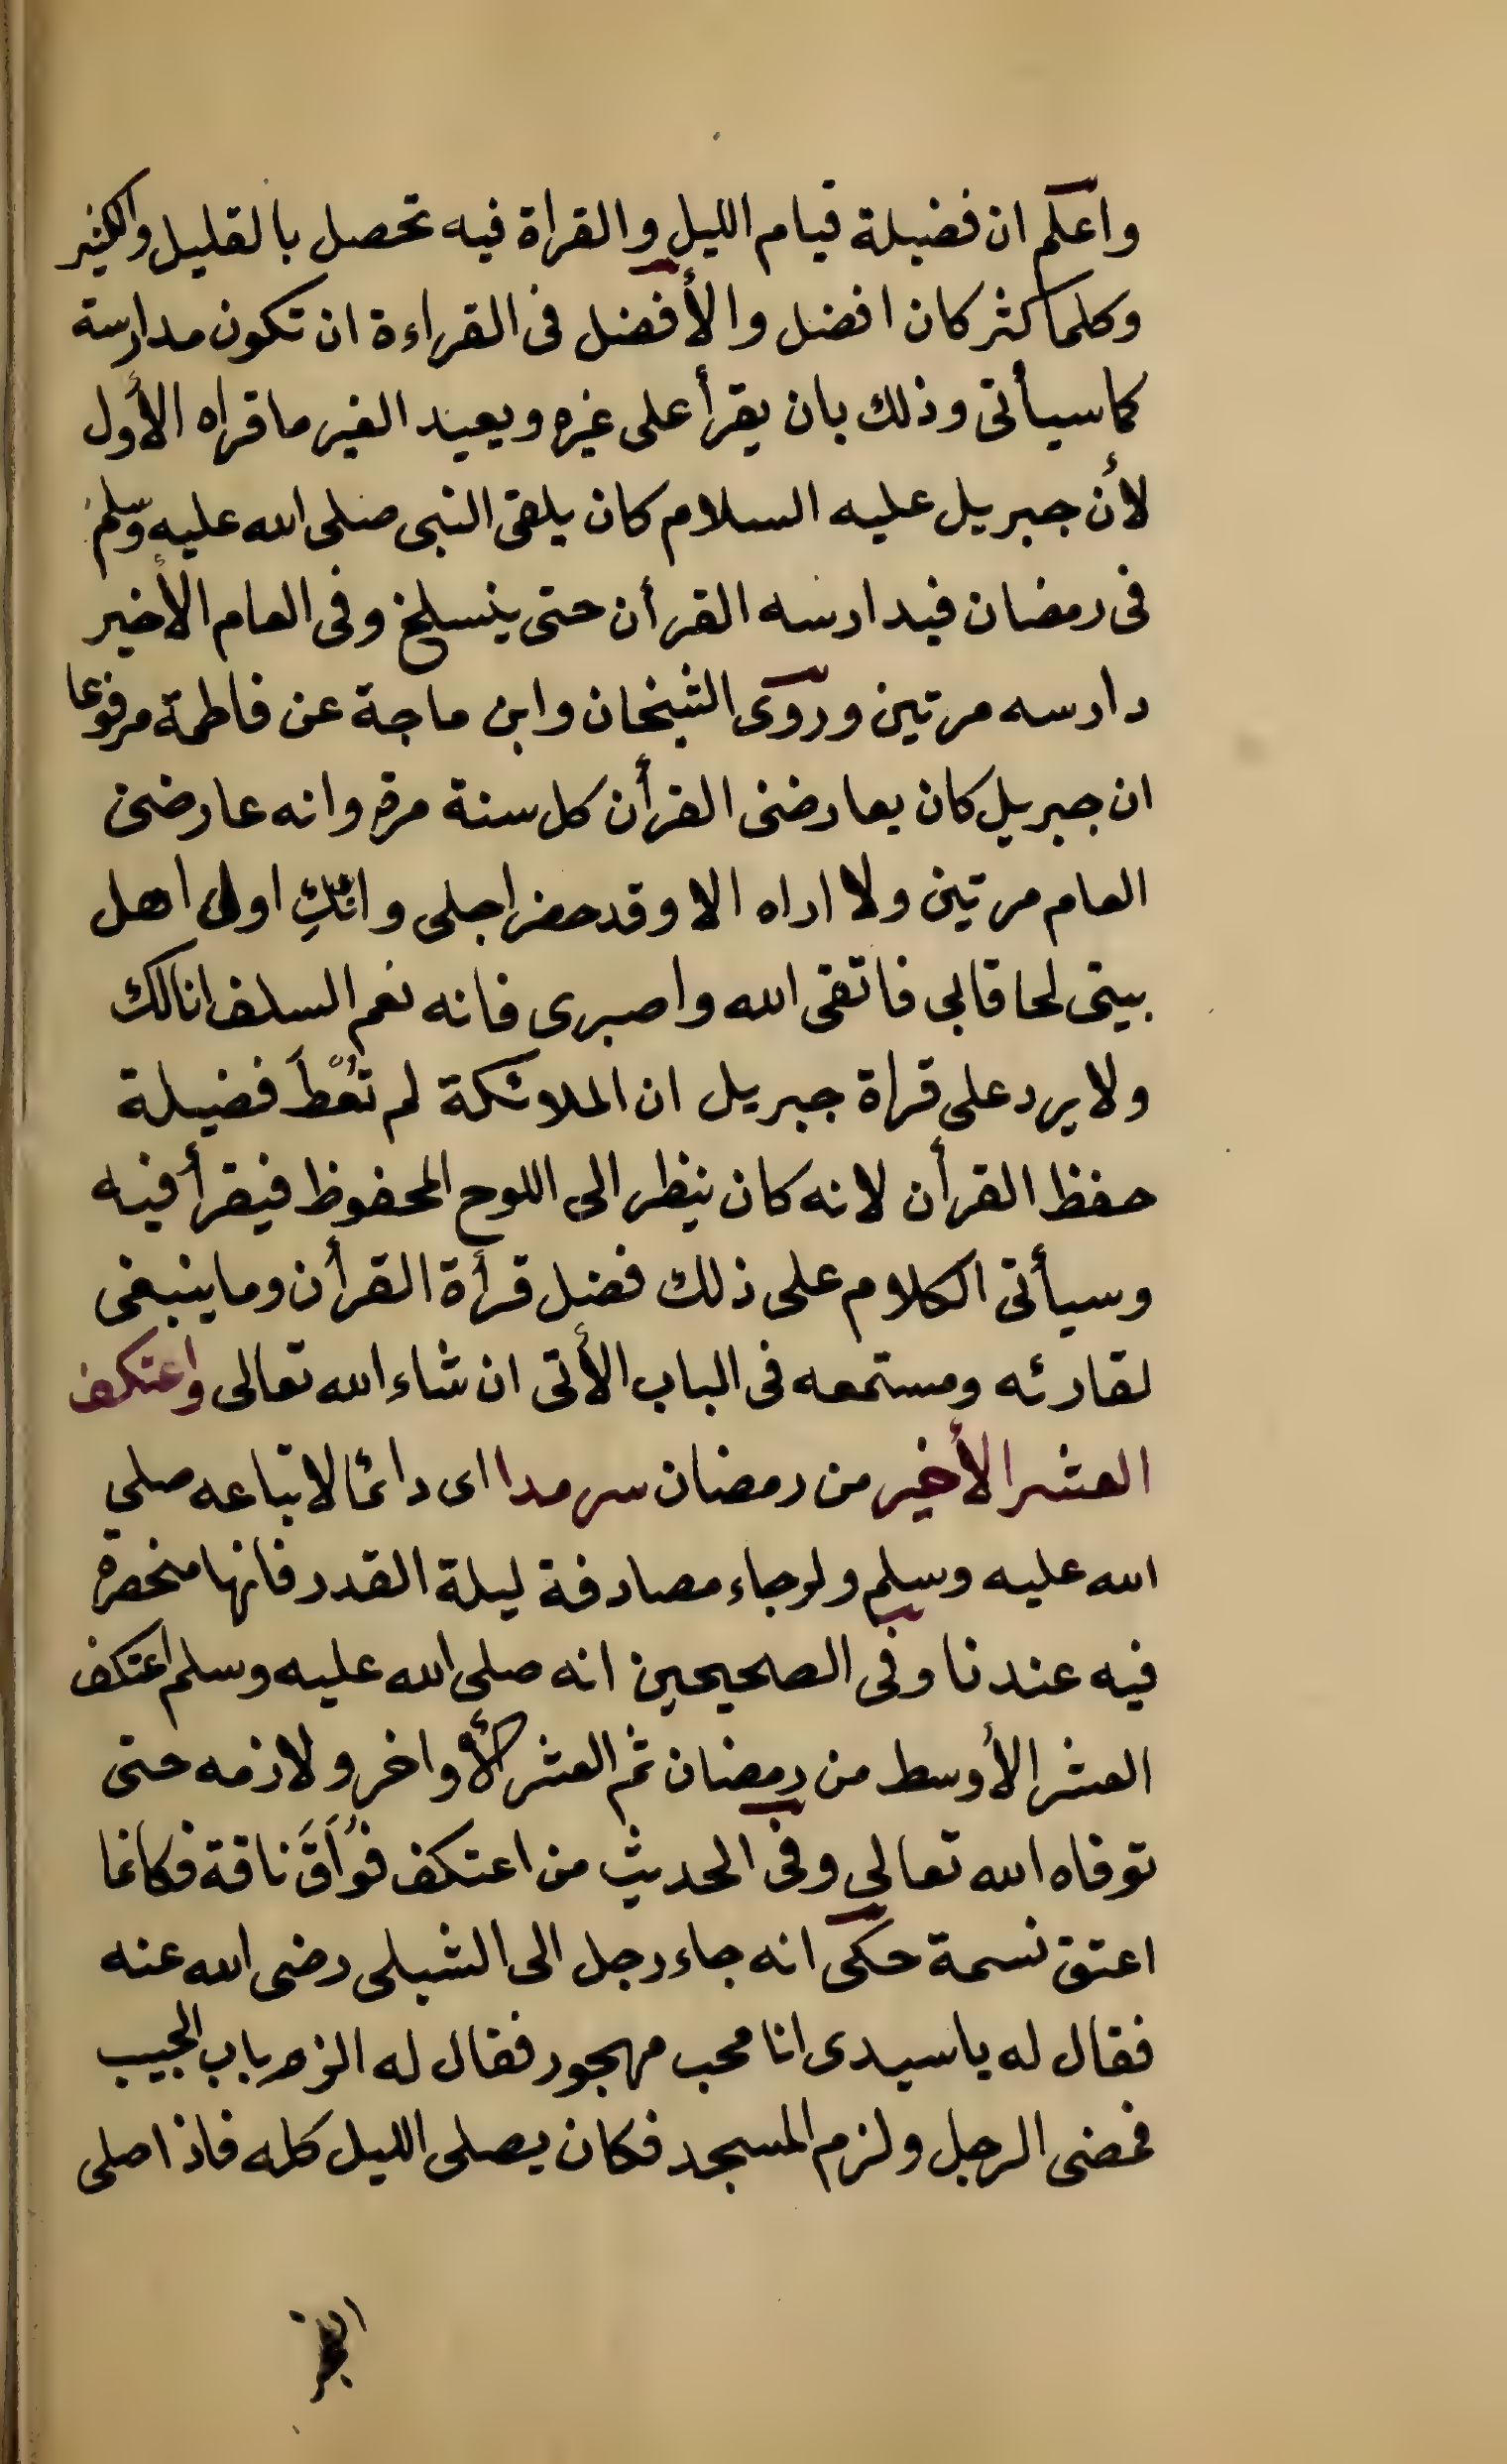 واعلم ان فضيلة قيام الليل والقراة فيه تحصل بالقليل والكثير
وكلما كثر كان افضل والأفضل فى القراءة ان تكون مدارسة
كما سيأتى وذلك بان يقرأ على غيره ويعيد الغير ما قراه الأول
لأن جبريل عليه السلام كان يلقى النبى صلى الله عليه وسلم
فى رمضان فيدارسه القرأن حتى ينسلخ وفى العام الأخير
دارسه مرتين وروى الشيخان وابن ماجة عن فاطمة مرفوعا
ان جبريل كان يعارضنى القرأن كل سنة مرة وانه عارضنى
العام مرتين ولا اراه الا وقد حضر اجلى وانّكِ اولى اهل
بيتى لحاقا بى فاتقى الله واصبرى فانه نعم السلف انا لك
ولا يرد على قراة جبريل ان الملائكة لم تُعْطَ فضيلة
حفظ القرأن لانه كان ينظر الى اللوح المحفوظ فيقرأ فيه
وسيأتى الكلام على ذلك فضل قرأة القرأن وما ينبغى
لقارئه ومستمعه فى الباب الأتى ان شاء الله تعالى واعتكف
العشر الأخير من رمضان سرمدا اى دائما لاتباعه صلى
الله عليه وسلم ولرجاء مصادفة ليلة القدر فانها منحصرة
فيه عندنا وفى الصحيحين انه صلى الله عليه وسلم اعتكف
العشر الأوسط من رمضان ثم العشر الأواخر ولازمه حتى
توفاه الله تعالى وفى الحديث من اعتكف فُوَاقَ ناقة فكانما
اعتق نسمة حكى انه جاء رجل الى الشبلى رضى الله عنه
فقال له يا سيدى انا محب مهجور فقال له الزم باب الحبيب
فمضى الرجل ولزم المسجد فكان يصلى الليل كله فاذا صلى
الفجر